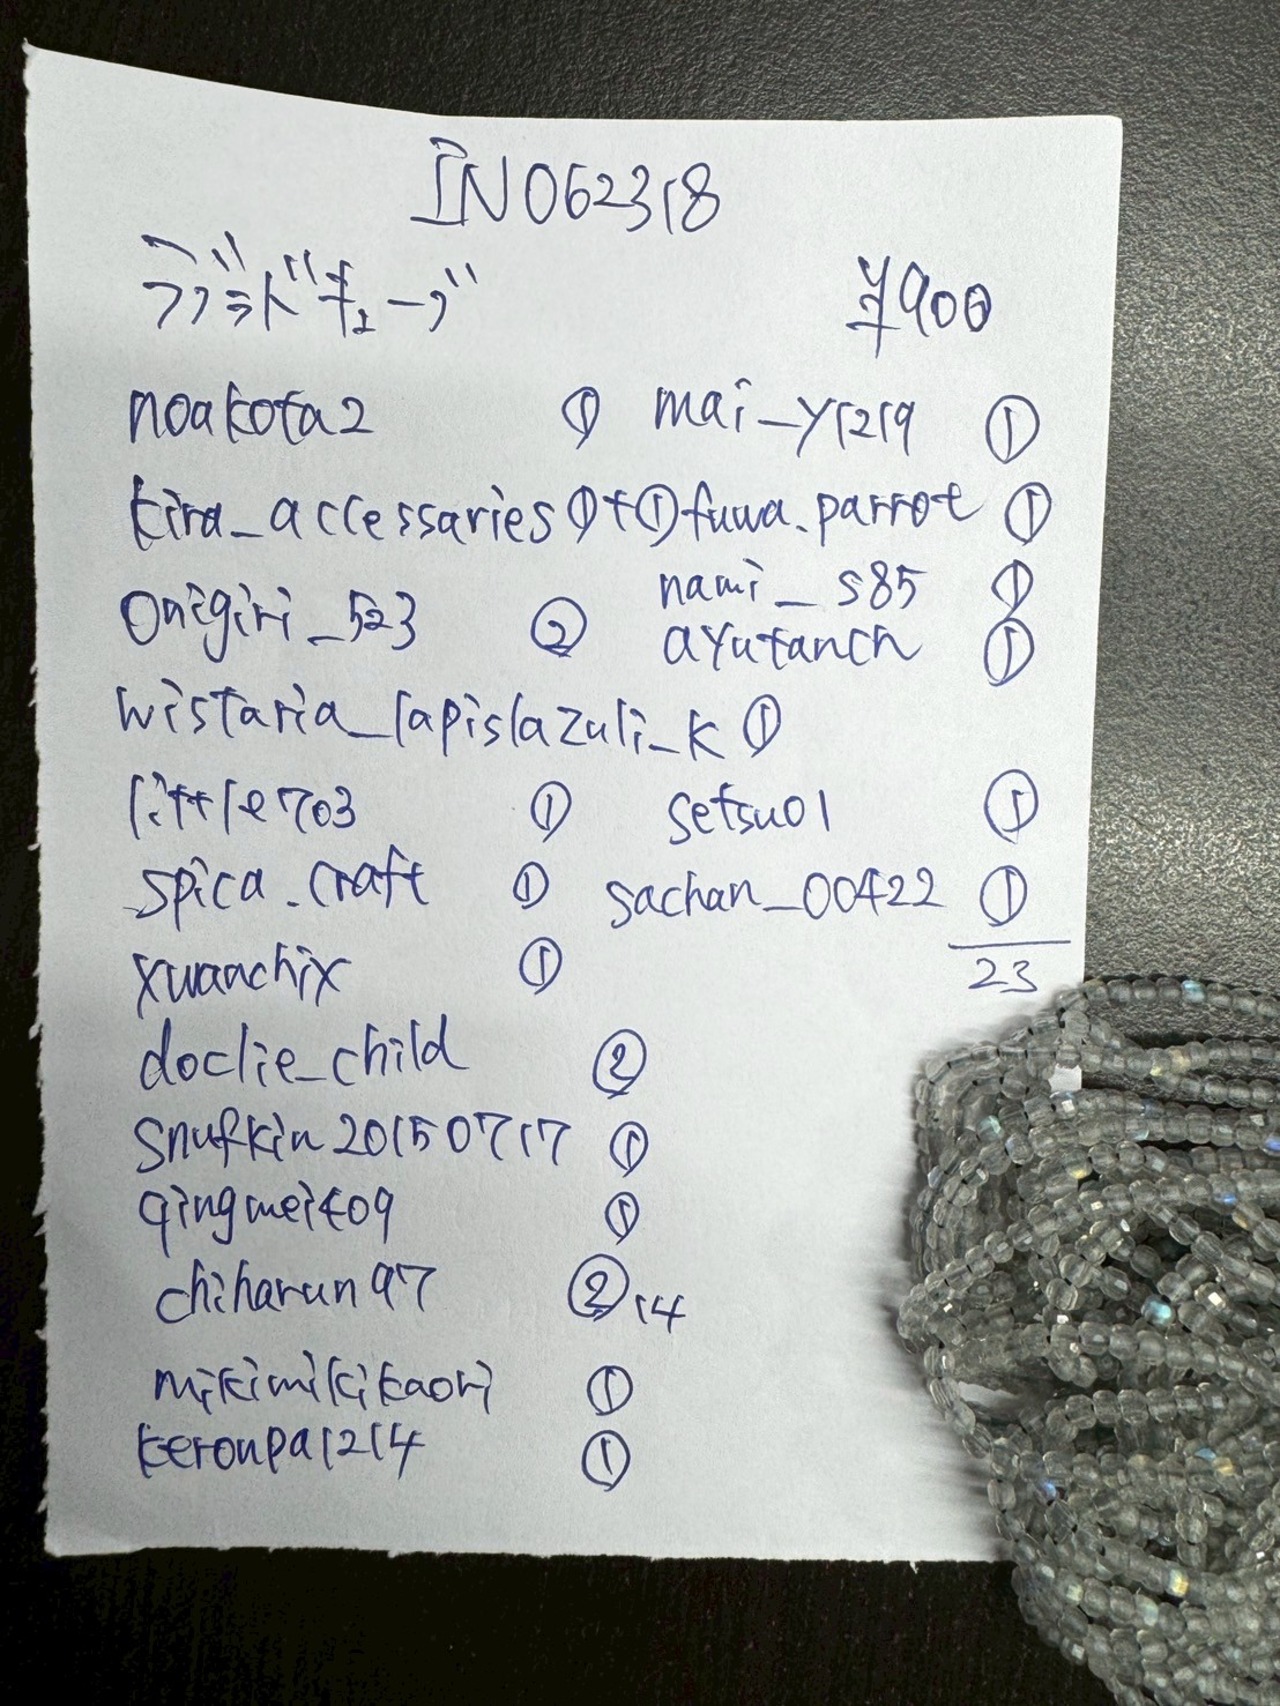 IN062318
ラブラドキューブ ¥900
noakota2 ① mai_y1219 ①
kira_accessaries ①+① fuwa.parrot ①
onigiri_523 ② nami_s85 ①
ayutanch ①
wistaria_lapislazuli_k ①
little703 ① setsu01 ①
spica.craft ① sachan_00422 ①
xuanchix ① 23
doclie_child ②
snufkin20150717 ①
qingmei409 ①
chiharun97 ② 14
mikimikikaori ①
keronpa1214 ①